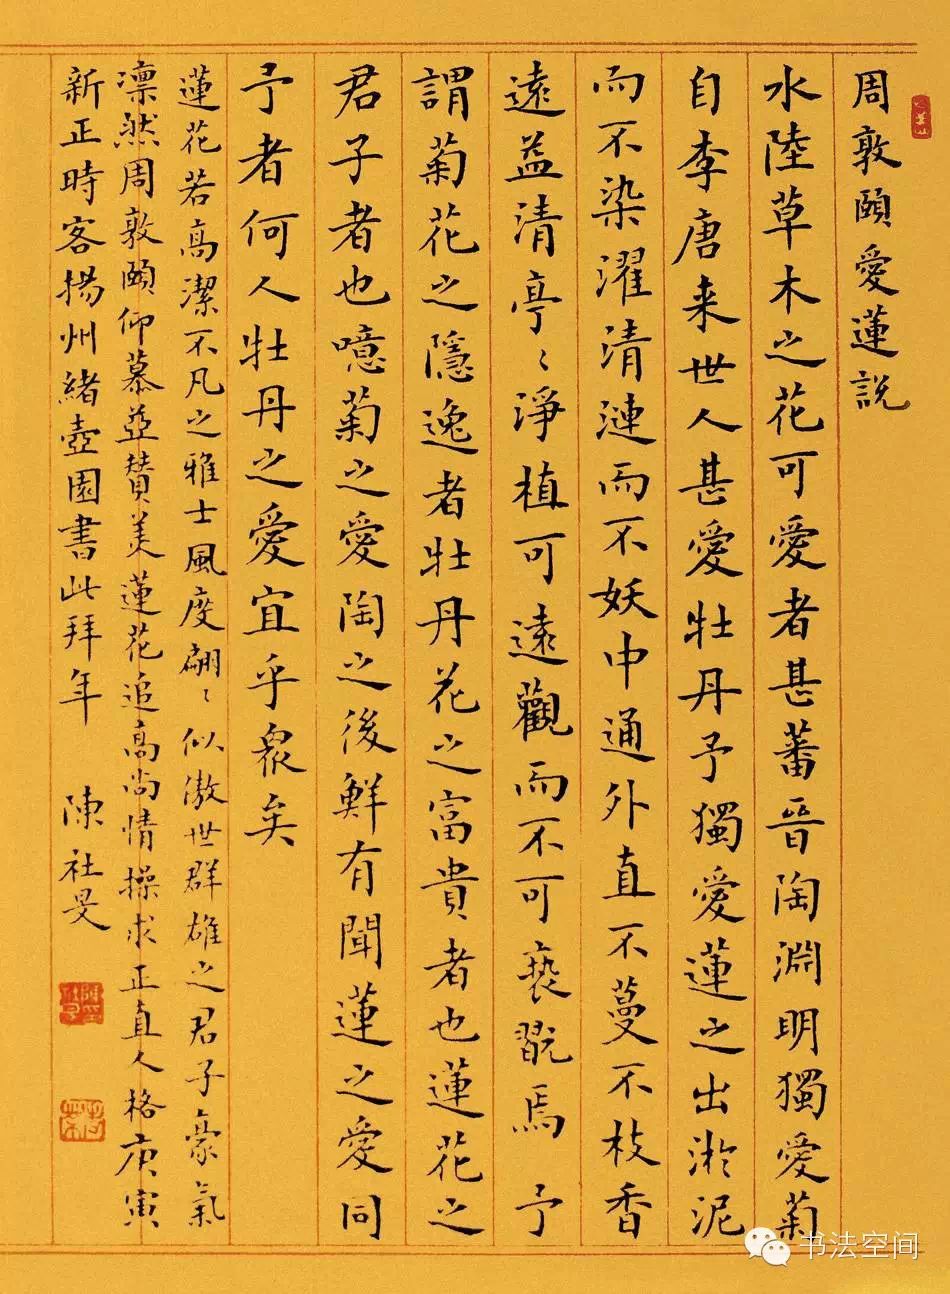 周敦頤愛蓮説
水陸草木之花可愛者甚蕃晉陶淵明獨愛菊
自李唐来世人甚愛牡丹予獨愛蓮之出淤泥
而不染濯清漣而不妖中通外直不蔓不枝香
遠益清亭〻淨植可遠觀而不可褻翫焉予
謂菊花之隱逸者牡丹花之富貴者也蓮花之
君子者也噫菊之愛陶之後鮮有聞蓮之愛同
予者何人牡丹之愛宜乎衆矣
蓮花若高潔不凡之雅士風度翩〻似傲世群雄之君子豪氣
凛然周敦頤仰慕並赞美蓮花追高尚情操求正直人格庚寅
新正時客揚州緒壺園書此拜年 陳社旻
书法空间